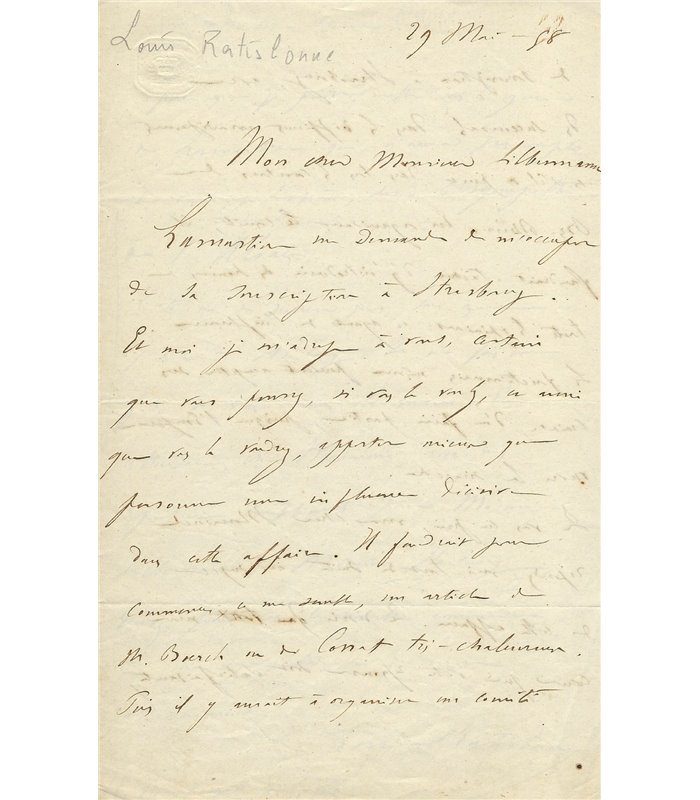 Louis Ratisbonne
29 Mai - 58
Mon cher Monsieur Silbermann
Lamartine me demande de m'occuper
de la souscription à Strasbourg.
Et moi je m'adresse à vous, certain
que vous pouvez, si vous le voulez, et aussi
que vous le voudrez, apporter mieux que
personne une influence décisive
dans cette affaire. Il faudrait pour
commencer ce me semble, un article de
M. Boersch ou de très-chaleureux.
Puis il y aurait à organiser un comité